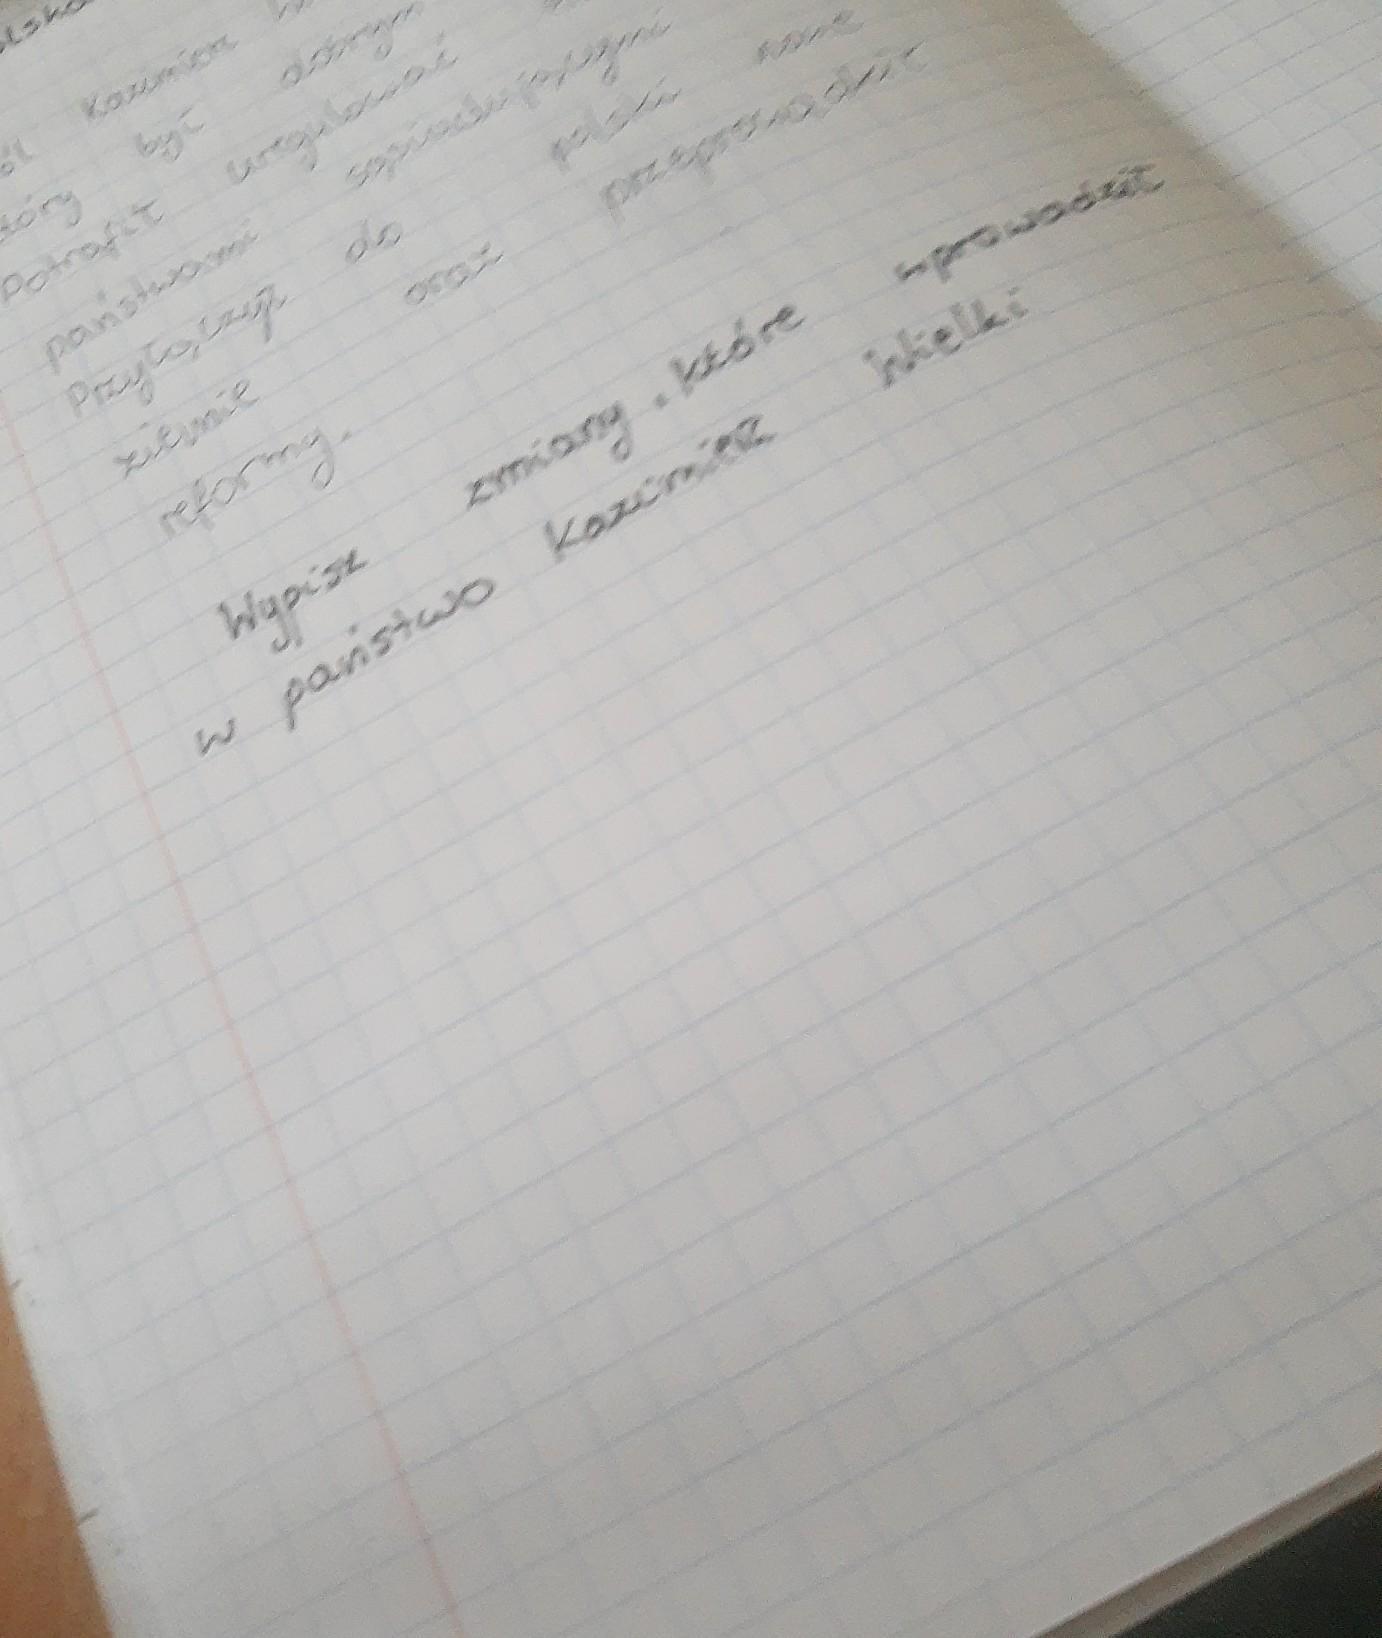 Kazimierz
który być dobrym
Potrafił uregulować
państwami sąsiadującymi
Przyłączył do polski nowe
ziemie oraz przeprowadził
reformy.
Wypisz zmiany, które wprowadził
w państwo Kazimierz Wielki